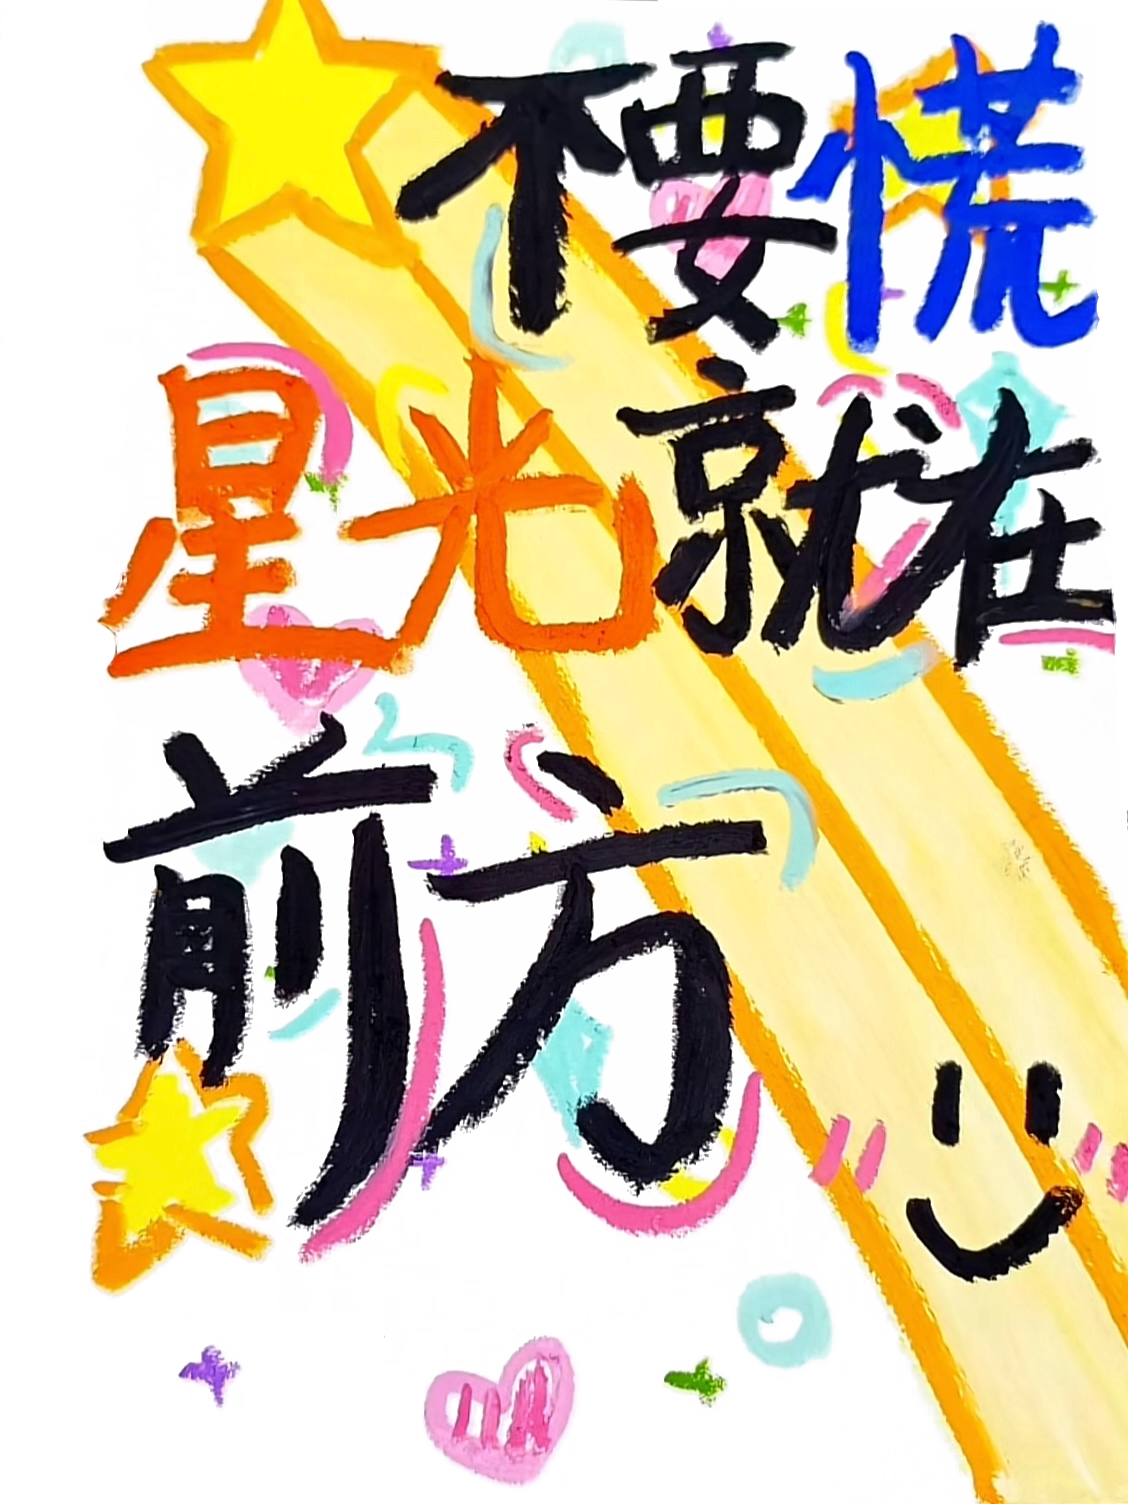 不要慌
星光就在
前方